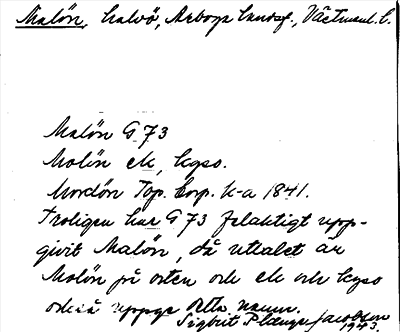 Malön, halvö, Arboga landsf., Västmanl. l.
Malön G 73
Molön ek, kyso.
Mordön Top. Corp. k-a 1841.
Troligen har G 73 felaktigt upp-
givit Malön, då uttalet är
Molön på orten och ek och kyso
också uppge detta namn.
Sigbrit Plænge Jacobson
1943.